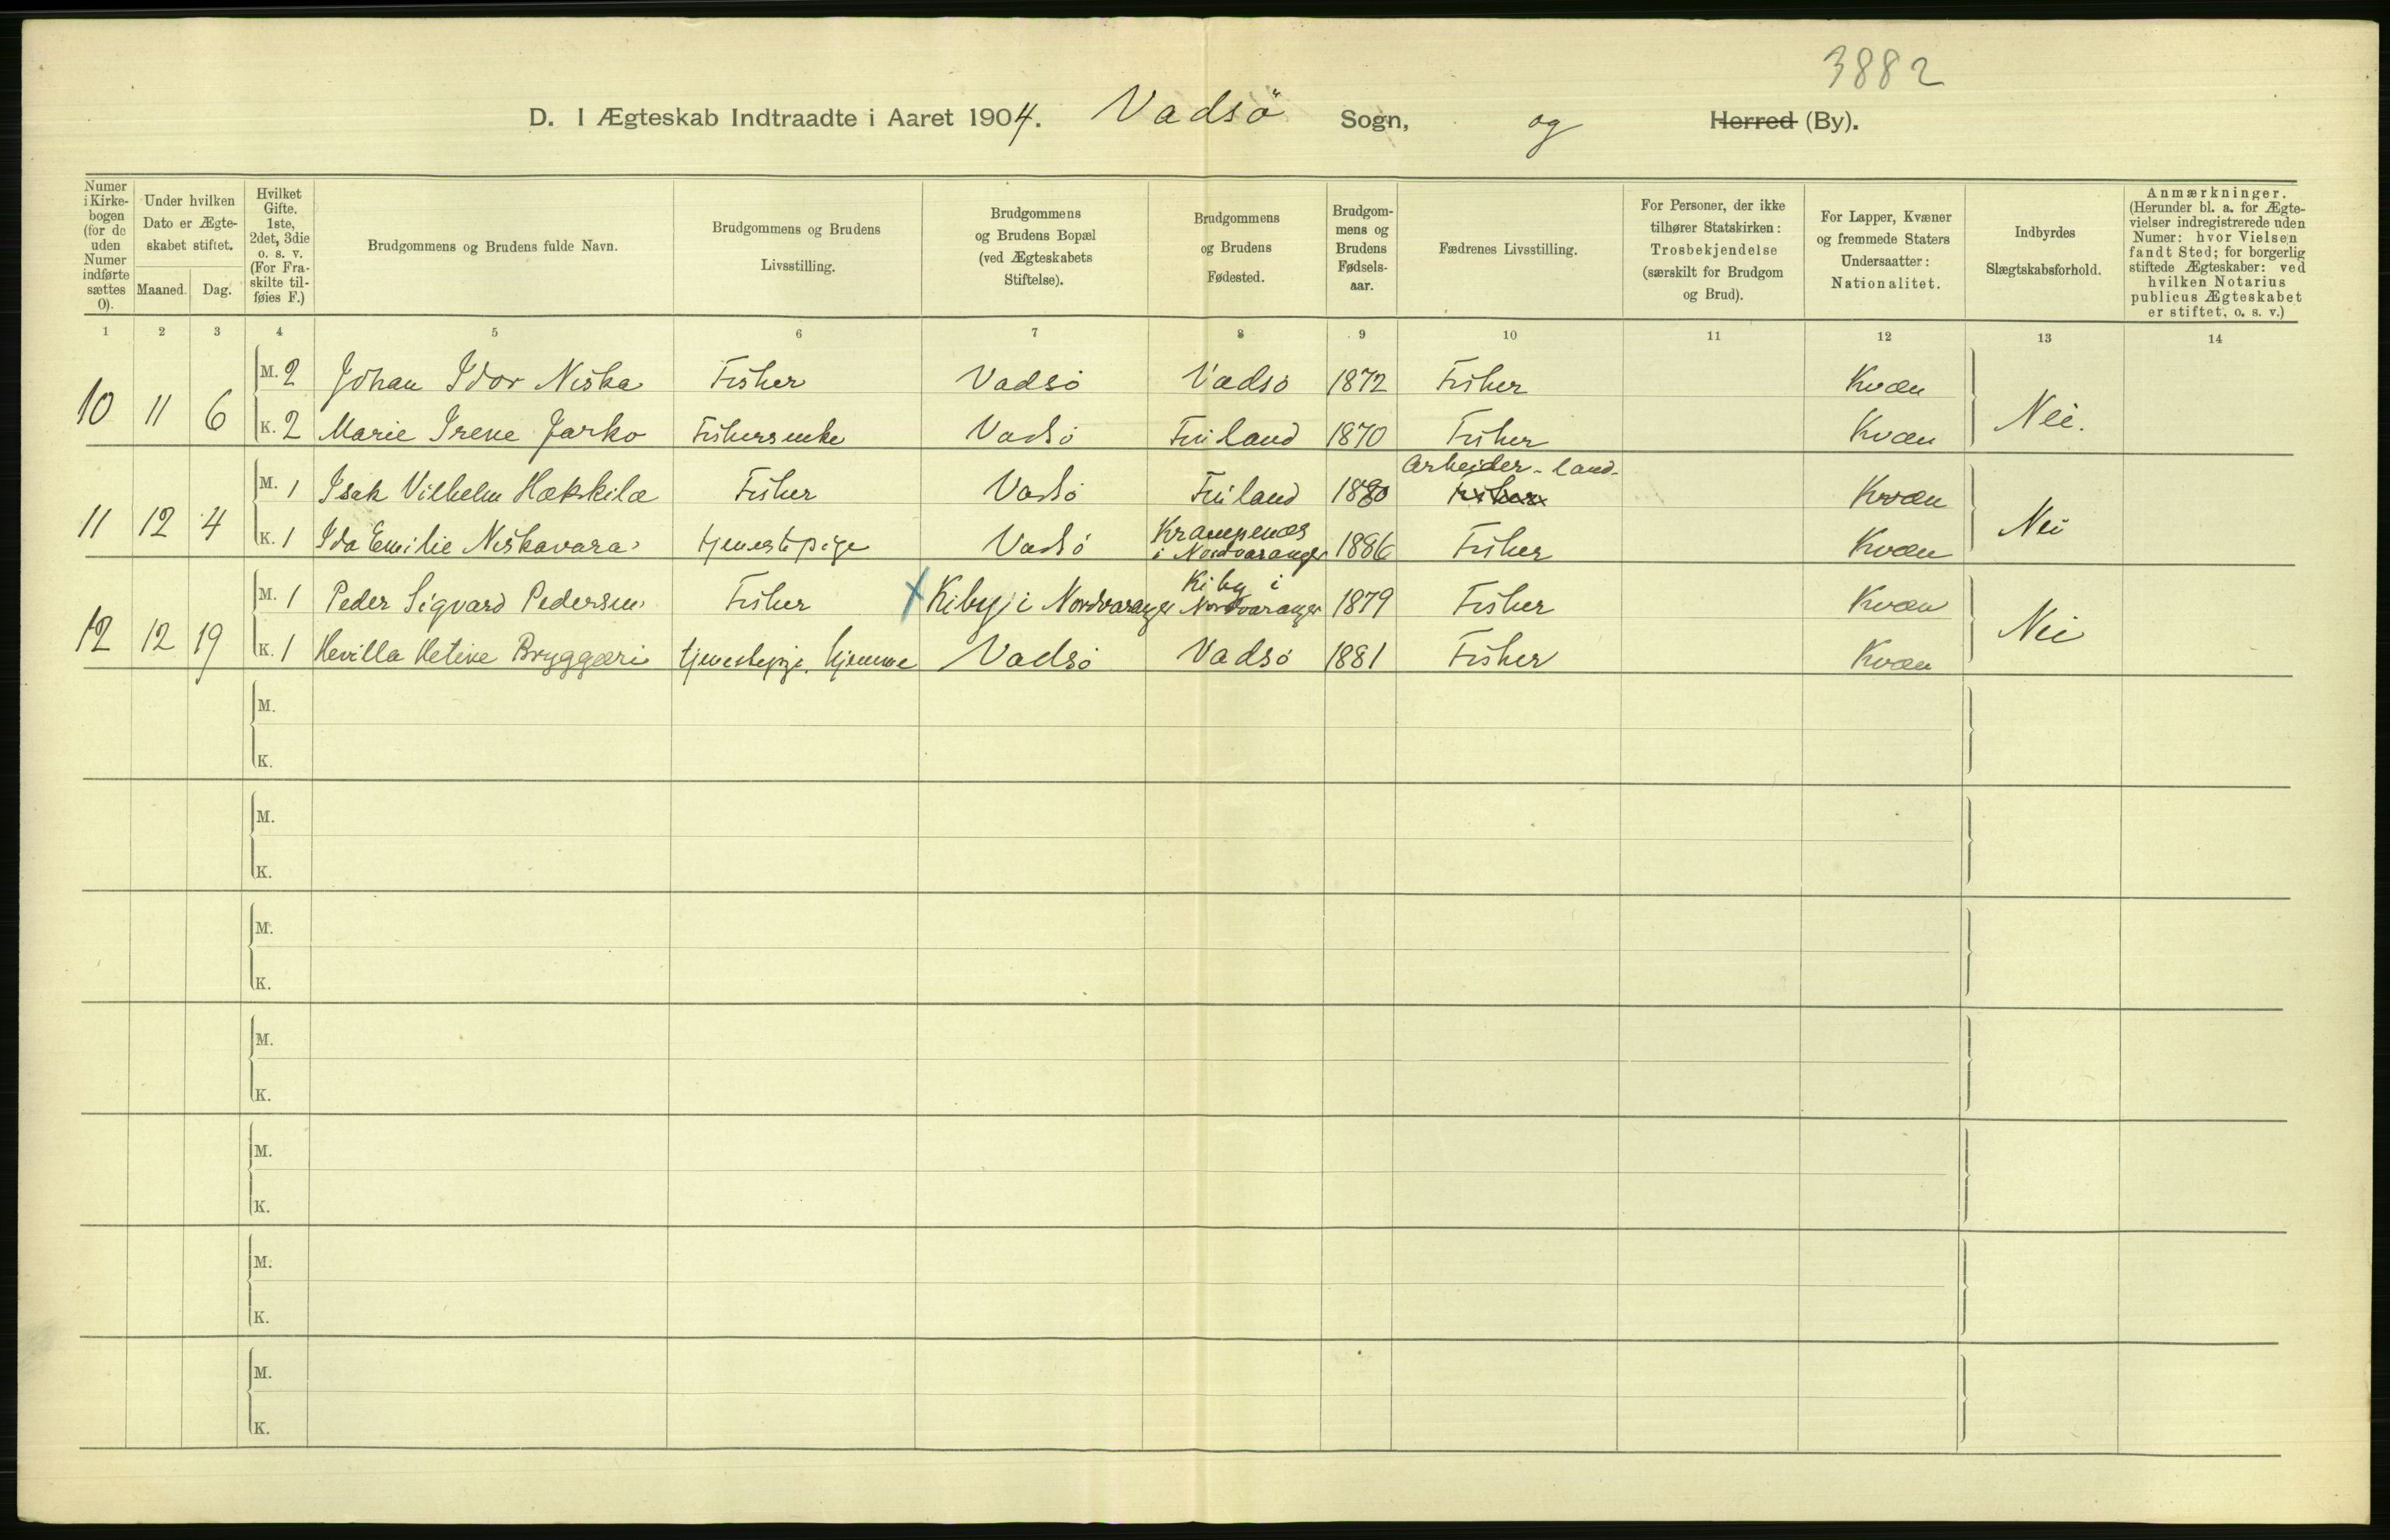 3882
D. I Ægteskab Indtraadte i Aaret 1904. Vadsö Sogn, og Herred (By).
Numer i Kirkebogen (for de uden Numer indførte sættes O).
Under hvilken Dato er Ægteskabet stiftet.
Maaned. Dag.
Hvilket Gifte. 1ste, 2det, 3die o. s. v. (For Fraskilte tilføies F.)
Brudgommens og Brudens fulde Navn.
Brudgommens og Brudens Livsstilling.
Brudgommens og Brudens Bopæl (ved Ægteskabets Stiftelse).
Brudgommens og Brudens Fødested.
Brudgommens og Brudens Fødselsaar.
Fædrenes Livsstilling.
For Personer, der ikke tilhører Statskirken: Trosbekjendelse (særskilt for Brudgom og Brud).
For Lapper, Kvæner og fremmede Staters Undersaatter: Nationalitet.
Indbyrdes Slægtskabsforhold.
Anmærkninger. (Herunder bl. a. for Ægtevielser indregistrerede uden Numer: hvor Vielsen fandt Sted; for borgerlig stiftede Ægteskaber: ved hvilken Notarius publicus Ægteskabet er stiftet, o. s. v.)
1 2 3 4 5 6 7 8 9 10 11 12 13 14
M. 2 Johan Idor Niska Fisker Vadsö Vadsö 1872 Fisker Kvæn
10 11 6 Nei.
K. 2 Marie Irene Jarko Fiskersenke Vadsö Finland 1870 Fisker Kvæn
Arbeider - land-
M. 1 Isak Vilhelm Hækkilæ Fisker Vadsö Finland 1880 Fisker Kvæn
11 12 4 Nei
Krampenæs
K. 1 Ida Emilie Niskavara tjenestepige Vadsö i Nordvaranger 1886 Fisker Kvæn
Kiby i
M. 1 Peder Sigvard Pedersen Fisker x Kiby i Nordvaranger Nordvaranger 1879 Fisker Kvæn
12 12 19 Nei
K. 1 Hevilla Hetine Bryggæri tjenestepige. hjemme Vadsö Vadsö 1881 Fisker Kvæn
M.
K.
M.
K.
M.
K.
M.
K.
M.
K.
M.
K.
M.
K.